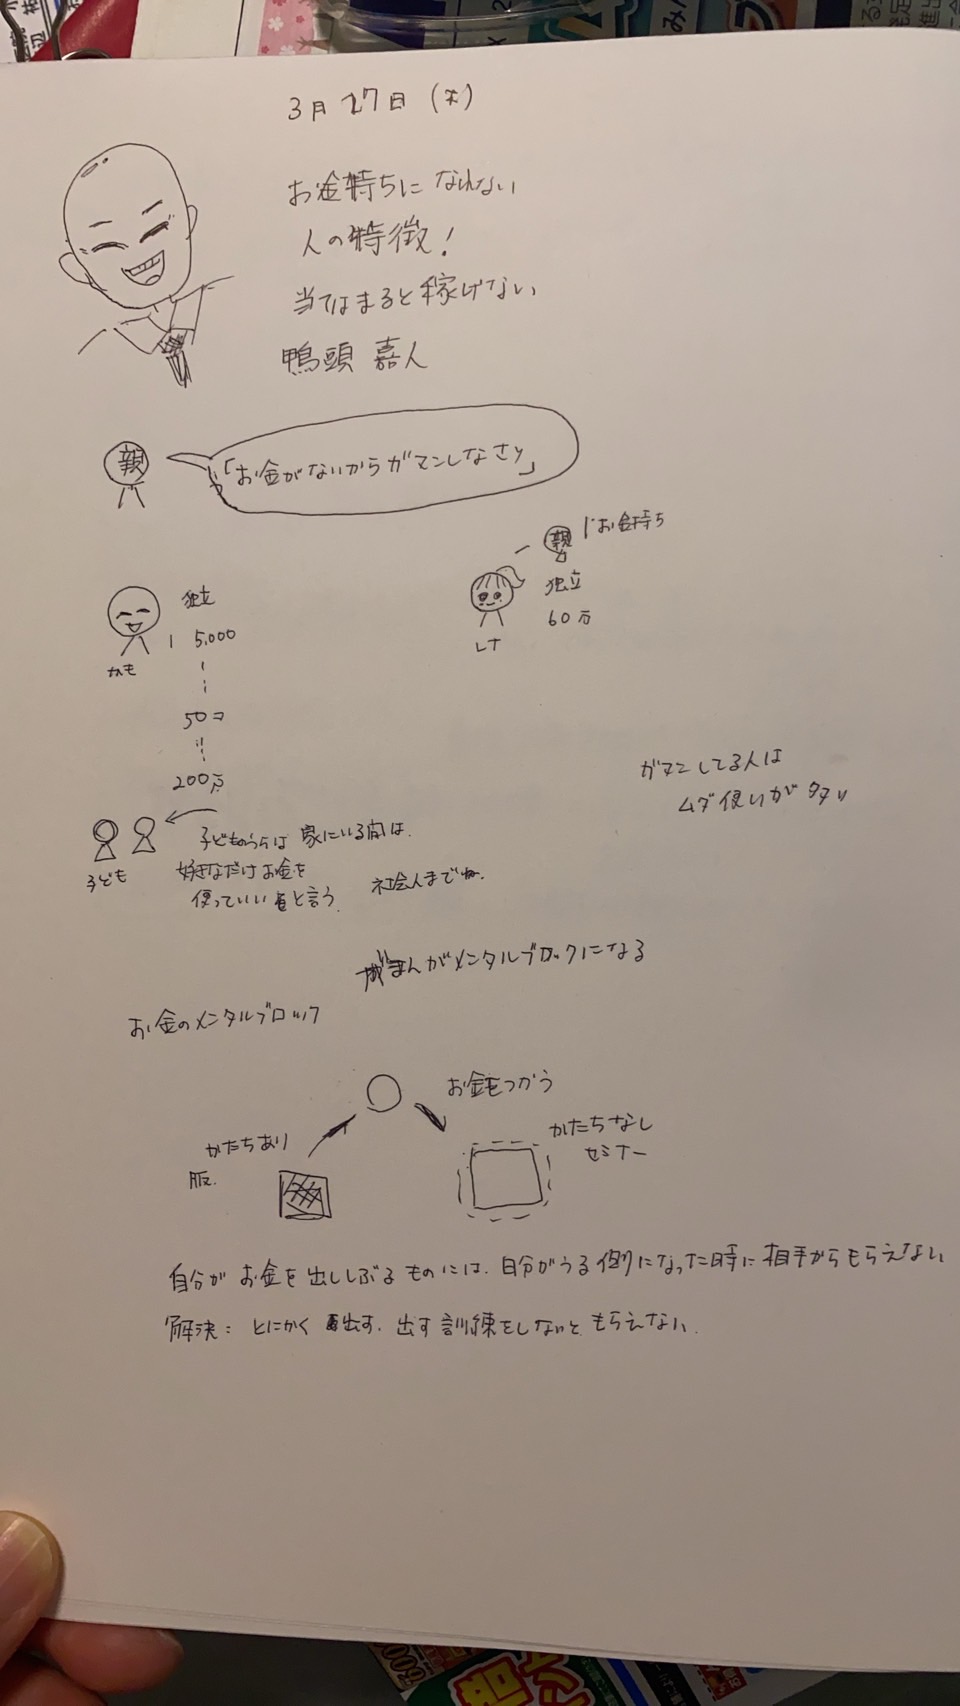 3月17日(木)
お金持ちになれない
人の特徴!
当てはまると稼げない
鴨頭 嘉人
親
「お金がないからガマンしなさい」
親 お金持ち
独立
5,000
かも
50コ
200万
独立
60万
レナ
ガマンしてる人は
ムダ使いが多い
子ども
子どものうちは 家にいる間は、
好きなだけお金を
使っていいと言う。
社会人までね。
がまんがメンタルブロックになる
お金のメンタルブロック
お金をつかう
かたちあり
服
かたちなし
セミナー
自分がお金を出ししぶるものには、自分がうる側になった時に相手からもらえない
解決: とにかく出す、出す訓練をしないともらえない。